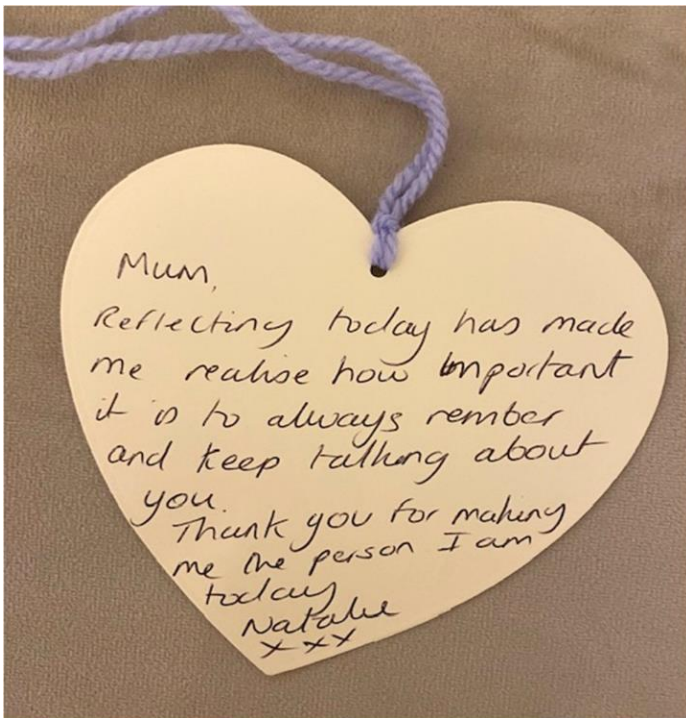 Mum,
Reflecting today has made
me realise how important
it is to always rember
and keep talking about
you.
Thank you for making
me the person I am
today
Natalie
xxx